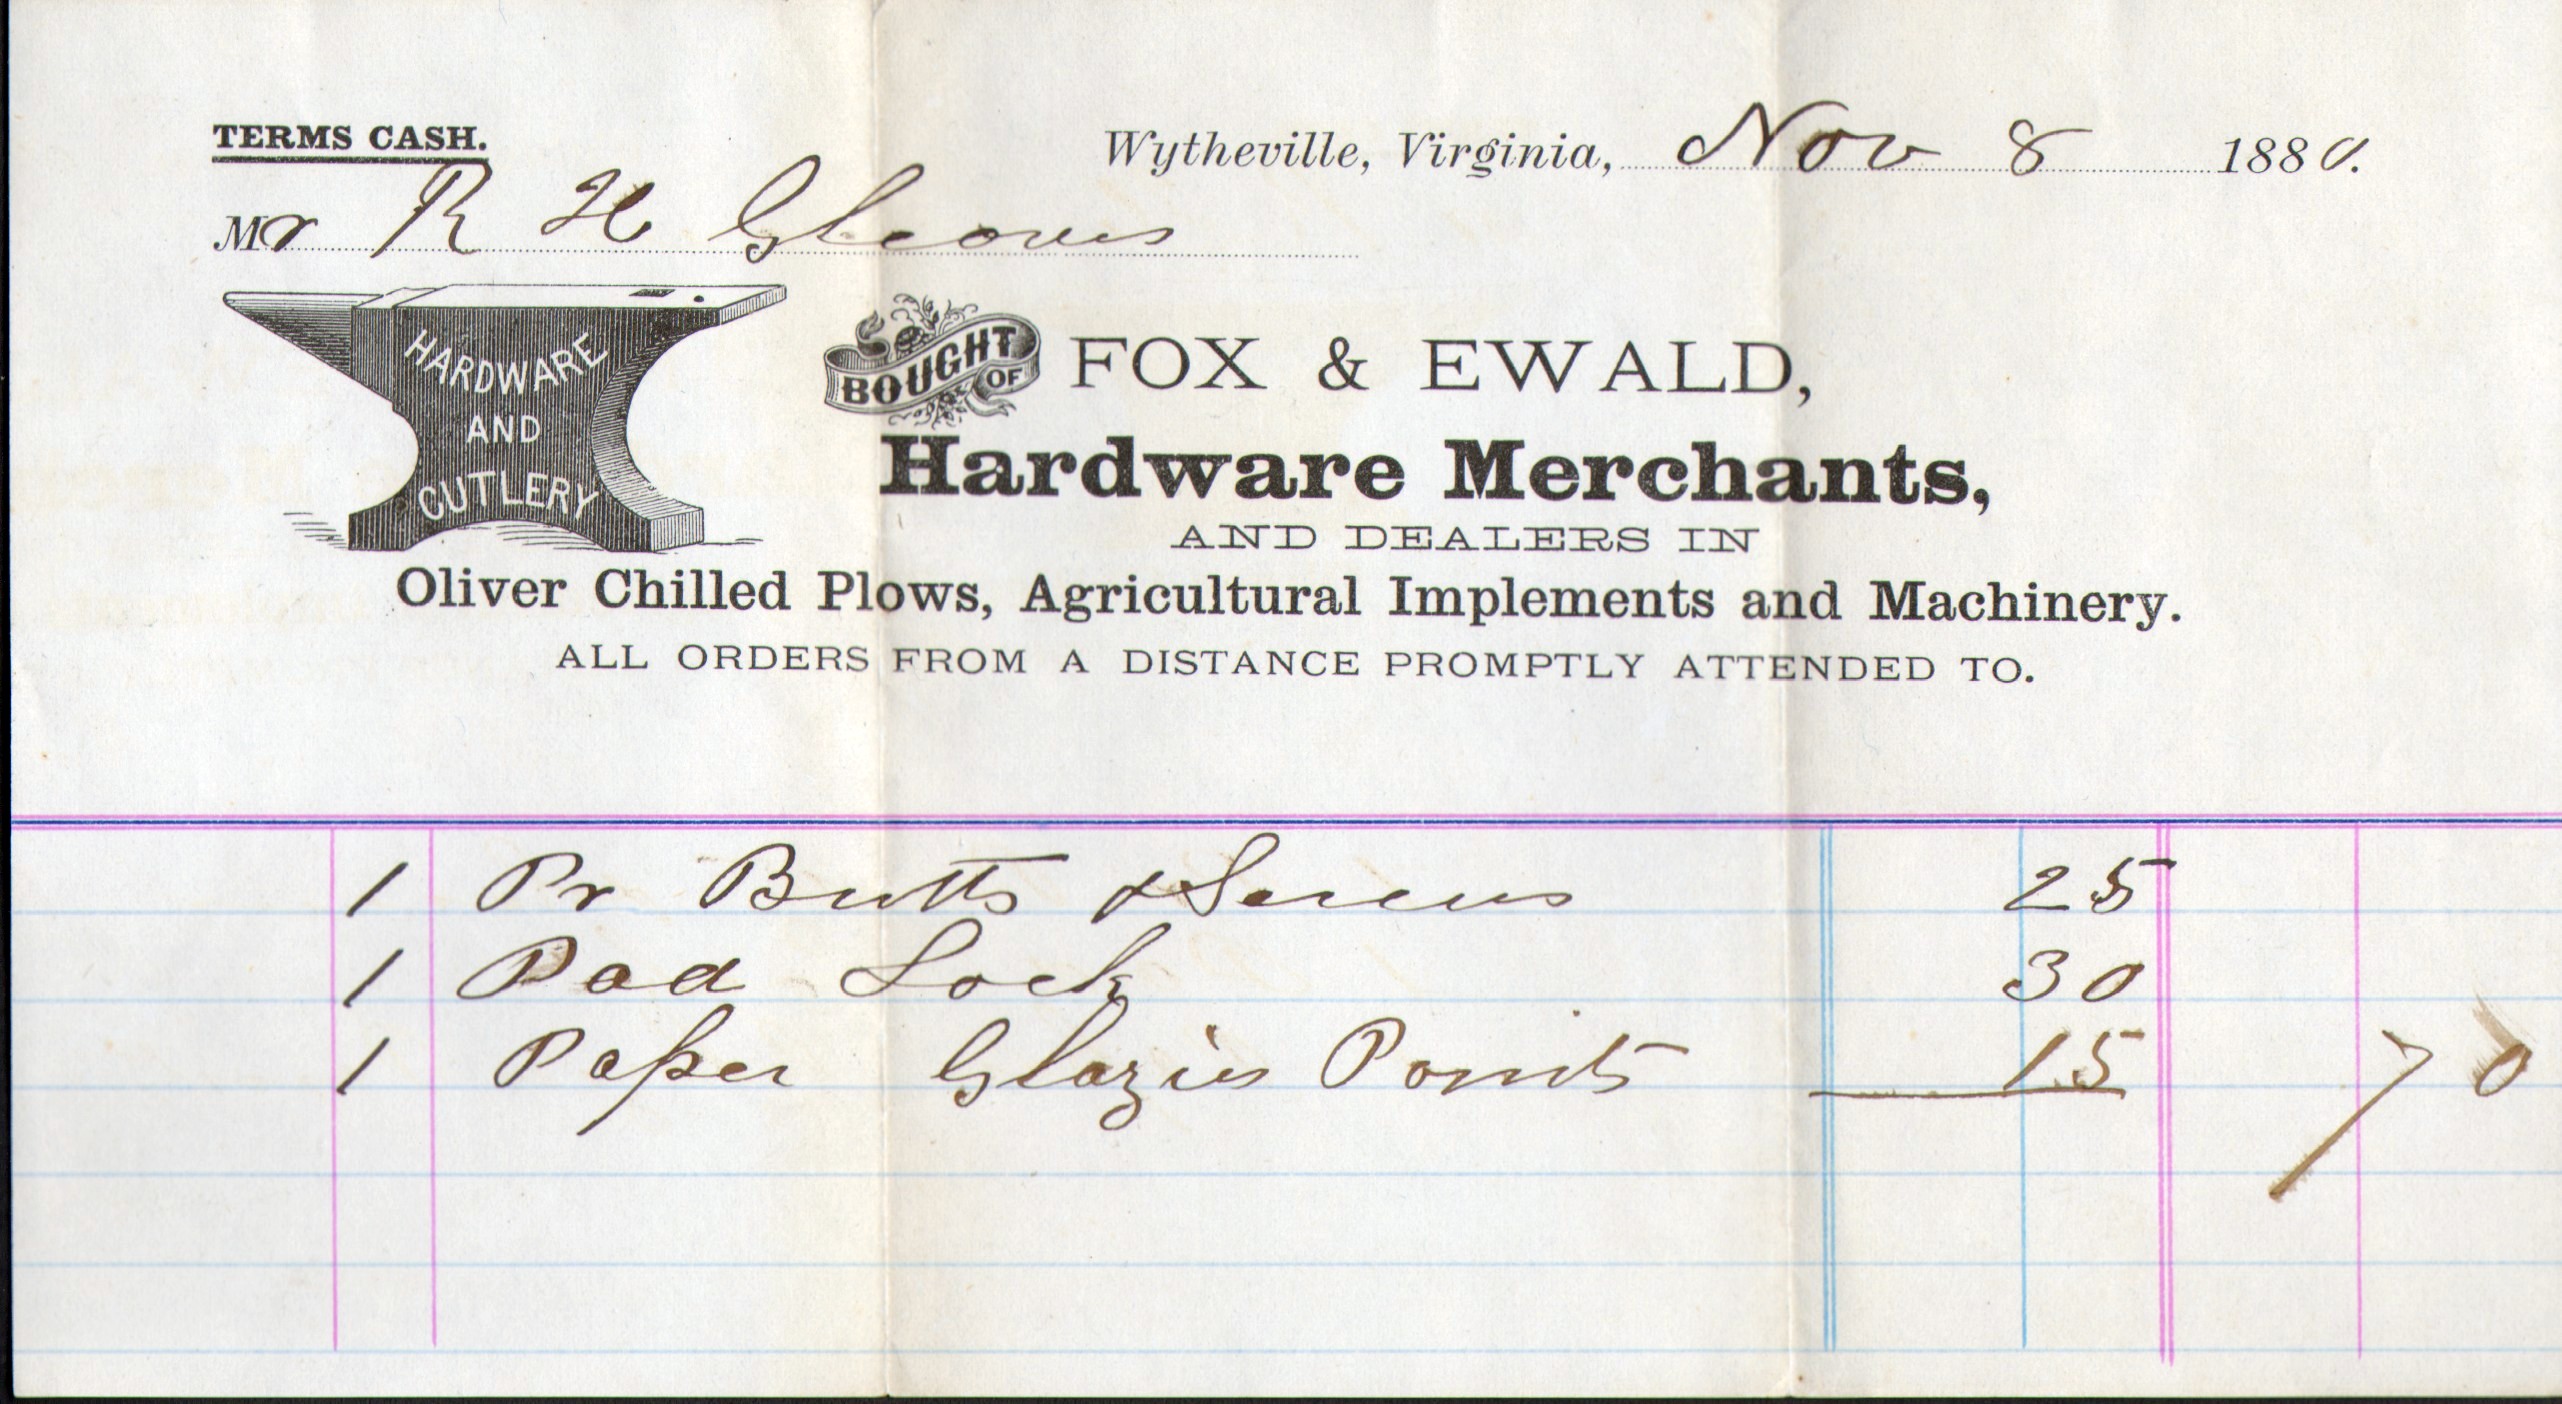 TERMS CASH.
Wytheville, Virginia, Nov 8 1880.
Mr R H Gleaves
HARDWARE
AND
CUTLERY
BOUGHT OF
FOX & EWALD,
Hardware Merchants,
AND DEALERS IN
Oliver Chilled Plows, Agricultural Implements and Machinery.
ALL ORDERS FROM A DISTANCE PROMPTLY ATTENDED TO.
1 Pr Butts & Screws 25
1 Pad Lock 30
1 Paper Glaziers Points 15 70